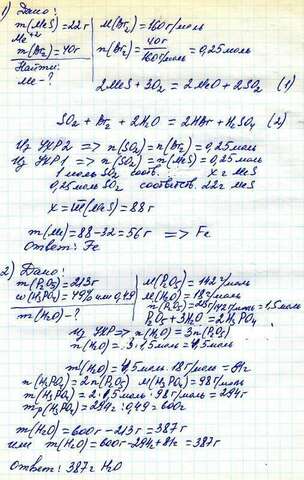 1) Дано:
m(MeS)=22г
Me⁺²
m(Br₂)=40г
Найти:
Me-?
M(Br₂)=160г/моль
n(Br₂)= 40г/160г/моль =0,25моль
2MeS+3O₂=2MeO+2SO₂ (1)
SO₂+Br₂+2H₂O=2HBr+H₂SO₄ (2)
Из УХР2 => n(SO₂)=n(Br₂)=0,25моль
Из УХР1 => n(SO₂)=n(MeS)=0,25моль
1 моль SO₂ соотв. x г MeS
0,25моль SO₂ соответств. 22г MeS
x=m(MeS)=88г
m(Me)=88-32=56г => Fe
Ответ: Fe
2) Дано:
m(P₂O₅)=213г
w(H₃PO₄)=49% или 0,49
m(H₂O)-?
M(P₂O₅)=142г/моль
M(H₂O)=18г/моль
n(P₂O₅)=213г/142г/моль=1,5моль
P₂O₅+3H₂O=2H₃PO₄
из УХР=> n(H₂O)=3n(P₂O₅)
n(H₂O)=3·1,5моль=4,5моль
m(H₂O)=4,5моль·18г/моль=81г
n(H₃PO₄)=2n(P₂O₅) M(H₃PO₄)=98г/моль
m(H₃PO₄)=2·1,5моль·98г/моль=294г
mр(H₃PO₄)=294г:0,49=600г
m(H₂O)=600г-213г=387г
или m(H₂O)=600г-294г+81г=387г
Ответ: 387г H₂O